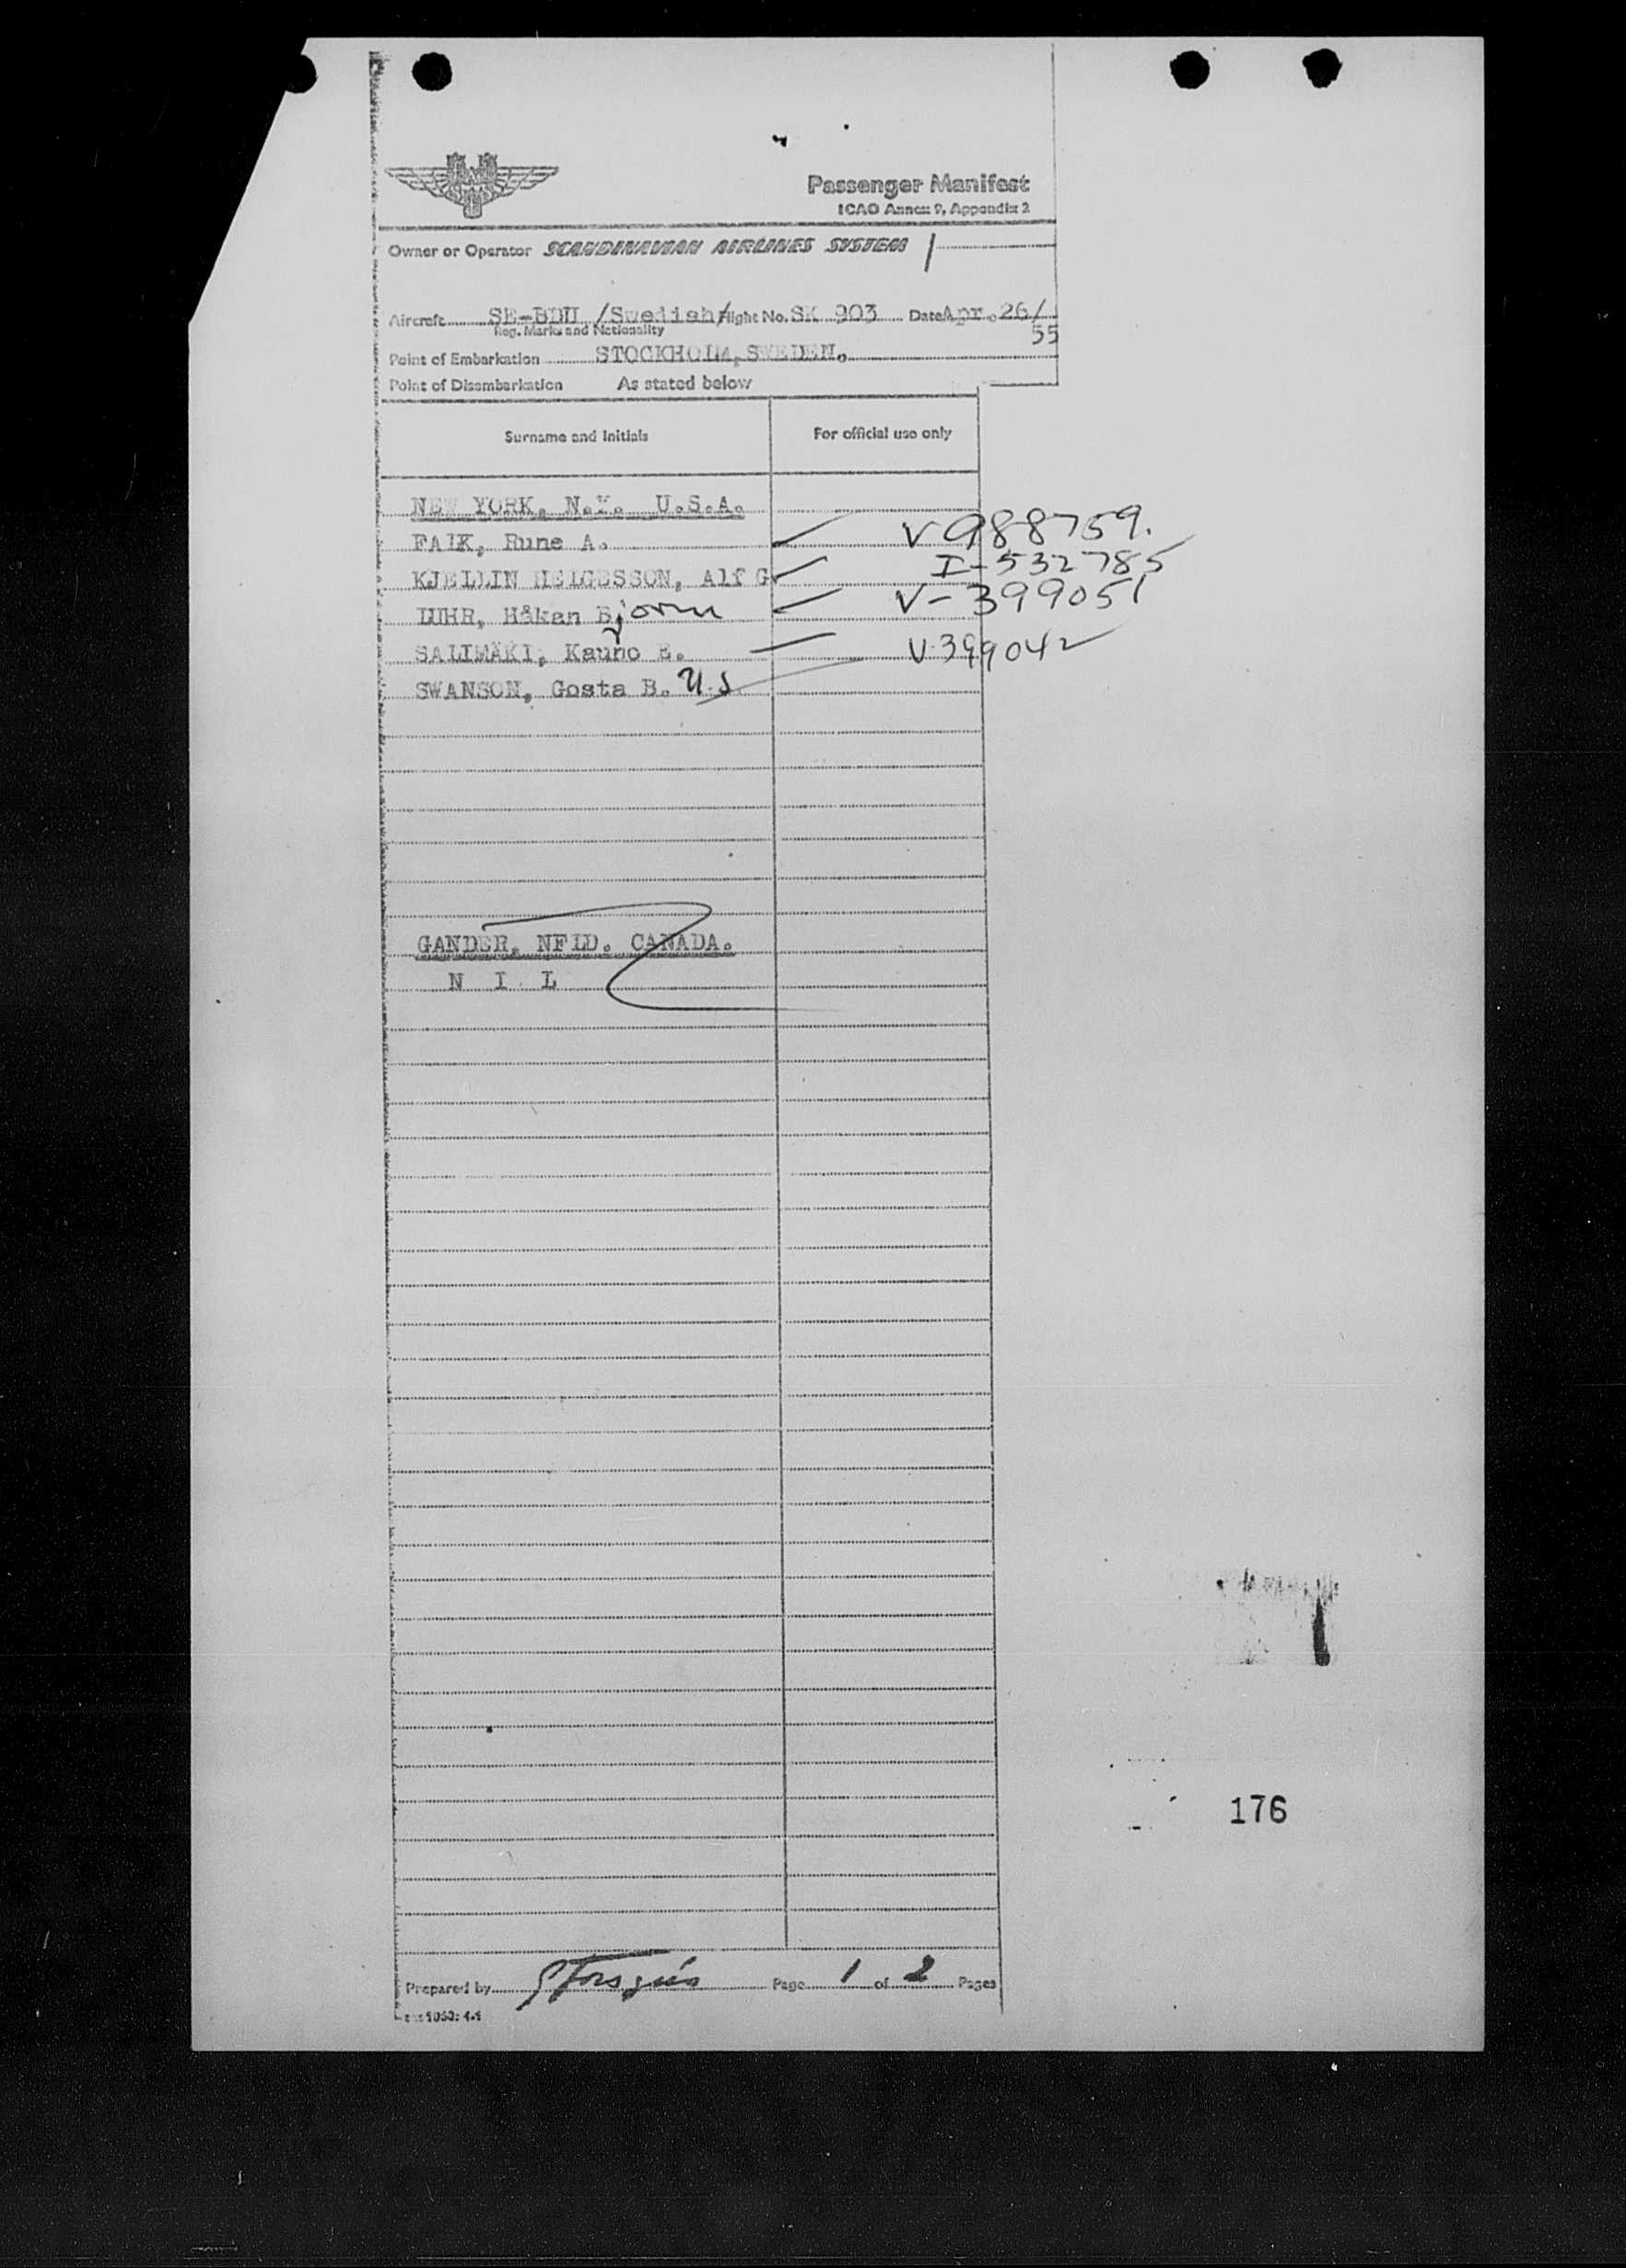 Passenger Manifest
ICAO Annex 9, Appendix 2
Owner or Operator SCANDINAVIAN AIRLINES SYSTEM
Aircraft SE-BDU /Swedish/ Flight No. SK 903 Date Apr. 26/
Reg. Marks and Nationality
55
Point of Embarkation STOCKHOLM, SWEDEN.
Point of Disembarkation As stated below
Surname and Initials For official use only
NEW YORK, N.Y. U.S.A.
FALK, Rune A. V 988759.
KJELLIN HELGESSON, Alf G. I-532785
LUHR, Håkan Bjorn V-399051
SALIMÄKI, Kauno E. V-399042
SWANSON, Gosta B. U.S.
GANDER, NFLD. CANADA.
N I L
176
Prepared by Page 1 of 2 Pages